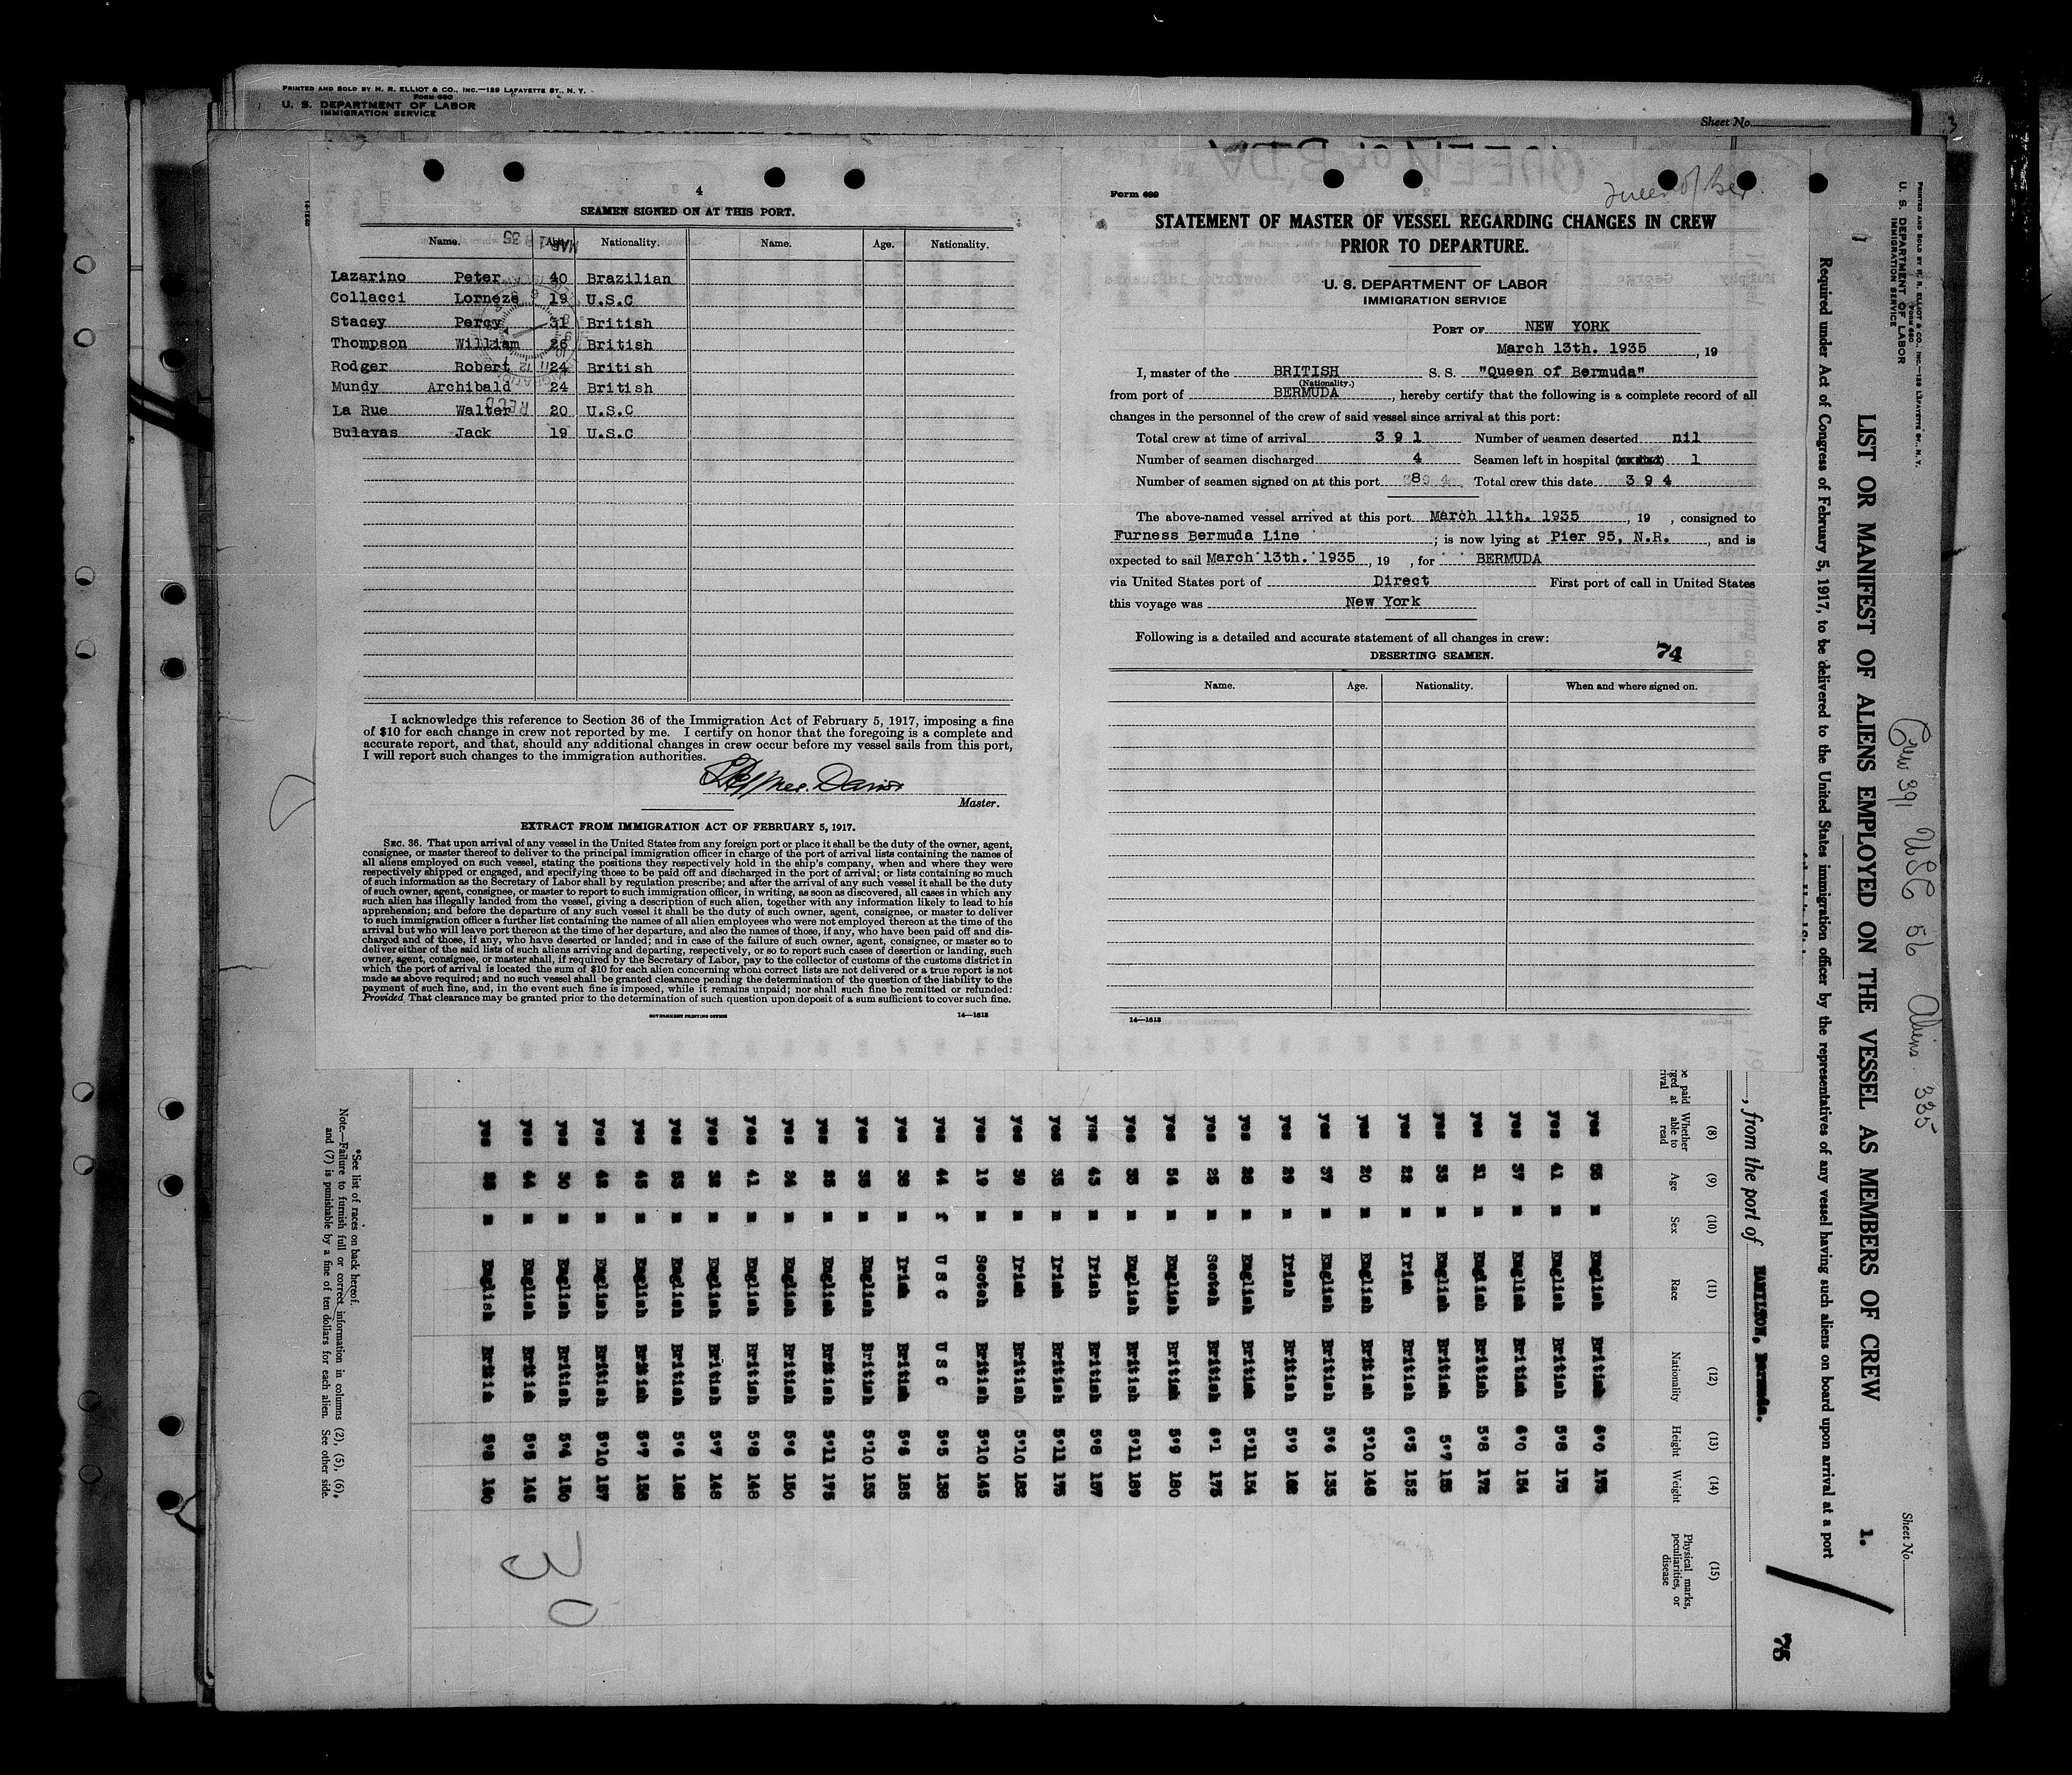 PRINTED AND SOLD BY H. R. ELLIOT & CO., INC.—129 LAFAYETTE ST., N. Y.
Form 680
U. S. DEPARTMENT OF LABOR
IMMIGRATION SERVICE
Sheet No.
4
SEAMEN SIGNED ON AT THIS PORT.
Name. Age. Nationality. Name. Age. Nationality.
Lazarino Peter 40 Brazilian
Collacci Lorneze 19 U.S.C
Stacey Percy 31 British
Thompson William 26 British
Rodger Robert 24 British
Mundy Archibald 24 British
La Rue Walter 20 U.S.C
Bulavas Jack 19 U.S.C
I acknowledge this reference to Section 36 of the Immigration Act of February 5, 1917, imposing a fine
of $10 for each change in crew not reported by me. I certify on honor that the foregoing is a complete and
accurate report, and that, should any additional changes in crew occur before my vessel sails from this port,
I will report such changes to the immigration authorities.
Davis
Master.
EXTRACT FROM IMMIGRATION ACT OF FEBRUARY 5, 1917.
SEC. 36. That upon arrival of any vessel in the United States from any foreign port or place it shall be the duty of the owner, agent,
consignee, or master thereof to deliver to the principal immigration officer in charge of the port of arrival lists containing the names of
all aliens employed on such vessel, stating the positions they respectively hold in the ship's company, when and where they were
respectively shipped or engaged, and specifying those to be paid off and discharged in the port of arrival; or lists containing so much
of such information as the Secretary of Labor shall by regulation prescribe; and after the arrival of any such vessel it shall be the duty
of such owner, agent, consignee, or master to report to such immigration officer, in writing, as soon as discovered, all cases in which any
such alien has illegally landed from the vessel, giving a description of such alien, together with any information likely to lead to his
apprehension; and before the departure of any such vessel it shall be the duty of such owner, agent, consignee, or master to deliver
to such immigration officer a further list containing the names of all alien employees who were not employed thereon at the time of the
arrival but who will leave port thereon at the time of her departure, and also the names of those, if any, who have been paid off and dis-
charged and of those, if any, who have deserted or landed; and in case of the failure of such owner, agent, consignee, or master so to
deliver either of the said lists of such aliens arriving and departing, respectively, or so to report such cases of desertion or landing, such
owner, agent, consignee, or master shall, if required by the Secretary of Labor, pay to the collector of customs of the customs district in
which the port of arrival is located the sum of $10 for each alien concerning whom correct lists are not delivered or a true report is not
made as above required; and no such vessel shall be granted clearance pending the determination of the question of the liability to the
payment of such fine, and, in the event such fine is imposed, while it remains unpaid; nor shall such fine be remitted or refunded:
Provided, That clearance may be granted prior to the determination of such question upon deposit of a sum sufficient to cover such fine.
GOVERNMENT PRINTING OFFICE 14—1613
Form 689
Queen of Ber.
STATEMENT OF MASTER OF VESSEL REGARDING CHANGES IN CREW
PRIOR TO DEPARTURE.
U. S. DEPARTMENT OF LABOR
IMMIGRATION SERVICE
PORT OF NEW YORK
March 13th. 1935, 19
I, master of the BRITISH S. S. "Queen of Bermuda"
(Nationality.)
from port of BERMUDA, hereby certify that the following is a complete record of all
changes in the personnel of the crew of said vessel since arrival at this port:
Total crew at time of arrival 3 9 1 Number of seamen deserted nil
Number of seamen discharged 4 Seamen left in hospital 1
Number of seamen signed on at this port 8 Total crew this date 3 9 4
The above-named vessel arrived at this port March 11th. 1935, 19 , consigned to
Furness Bermuda Line; is now lying at Pier 95, N.R., and is
expected to sail March 13th. 1935, 19 , for BERMUDA
via United States port of Direct First port of call in United States
this voyage was New York
Following is a detailed and accurate statement of all changes in crew:
DESERTING SEAMEN. 74
Name. Age. Nationality. When and where signed on.
14—1613
PRINTED AND SOLD BY H. R. ELLIOT & CO., INC.—129 LAFAYETTE ST., N. Y.
Form 680
U. S. DEPARTMENT OF LABOR
IMMIGRATION SERVICE
Sheet No.
Crew 391 USC 56 Aliens 335
LIST OR MANIFEST OF ALIENS EMPLOYED ON THE VESSEL AS MEMBERS OF CREW 1.
Required under Act of Congress of February 5, 1917, to be delivered to the United States immigration officer by the representatives of any vessel having such aliens on board upon arrival at a port
, from the port of HAMILTON, Bermuda.
75
(8) (9) (10) (11) (12) (13) (14) (15)
Whether able to read Age Sex Race Nationality Height Weight Physical marks, peculiarities, or disease
yes 55 m English British 6'0 175
yes 41 m English British 5'8 175
yes 37 m English British 6'0 154
yes 31 m English British 5'8 172
yes 35 m English British 5'7 155
yes 22 m Irish British 6'3 152
yes 20 m English British 5'10 148
yes 37 m English British 5'6 135
yes 29 m Irish British 5'9 162
yes 28 m English British 5'11 154
yes 25 m Scotch British 6'1 175
yes 56 m English British 5'9 180
yes 35 m English British 5'11 189
yes 43 m Irish British 5'8 157
yes 35 m Irish British 5'11 175
yes 39 m Irish British 5'10 182
yes 19 m Scotch British 5'10 145
yes 44 f U S C U S C 5'5 138
yes 36 m Irish British 5'6 185
yes 35 m English British 5'10 155
yes 25 m English British 5'11 175
yes 24 m English British 5'6 150
yes 41 m English British 5'8 148
yes 32 m English British 5'7 148
yes 53 m English British 5'6 168
yes 45 m English British 5'7 158
yes 42 m English British 5'10 157
yes 30 m English British 5'4 150
yes 44 m English British 5'5 145
yes 28 m English British 5'8 160
30
*See list of races on back hereof.
Note.—Failure to furnish full or correct information in columns (2), (5), (6),
and (7) is punishable by a fine of ten dollars for each alien. See other side.